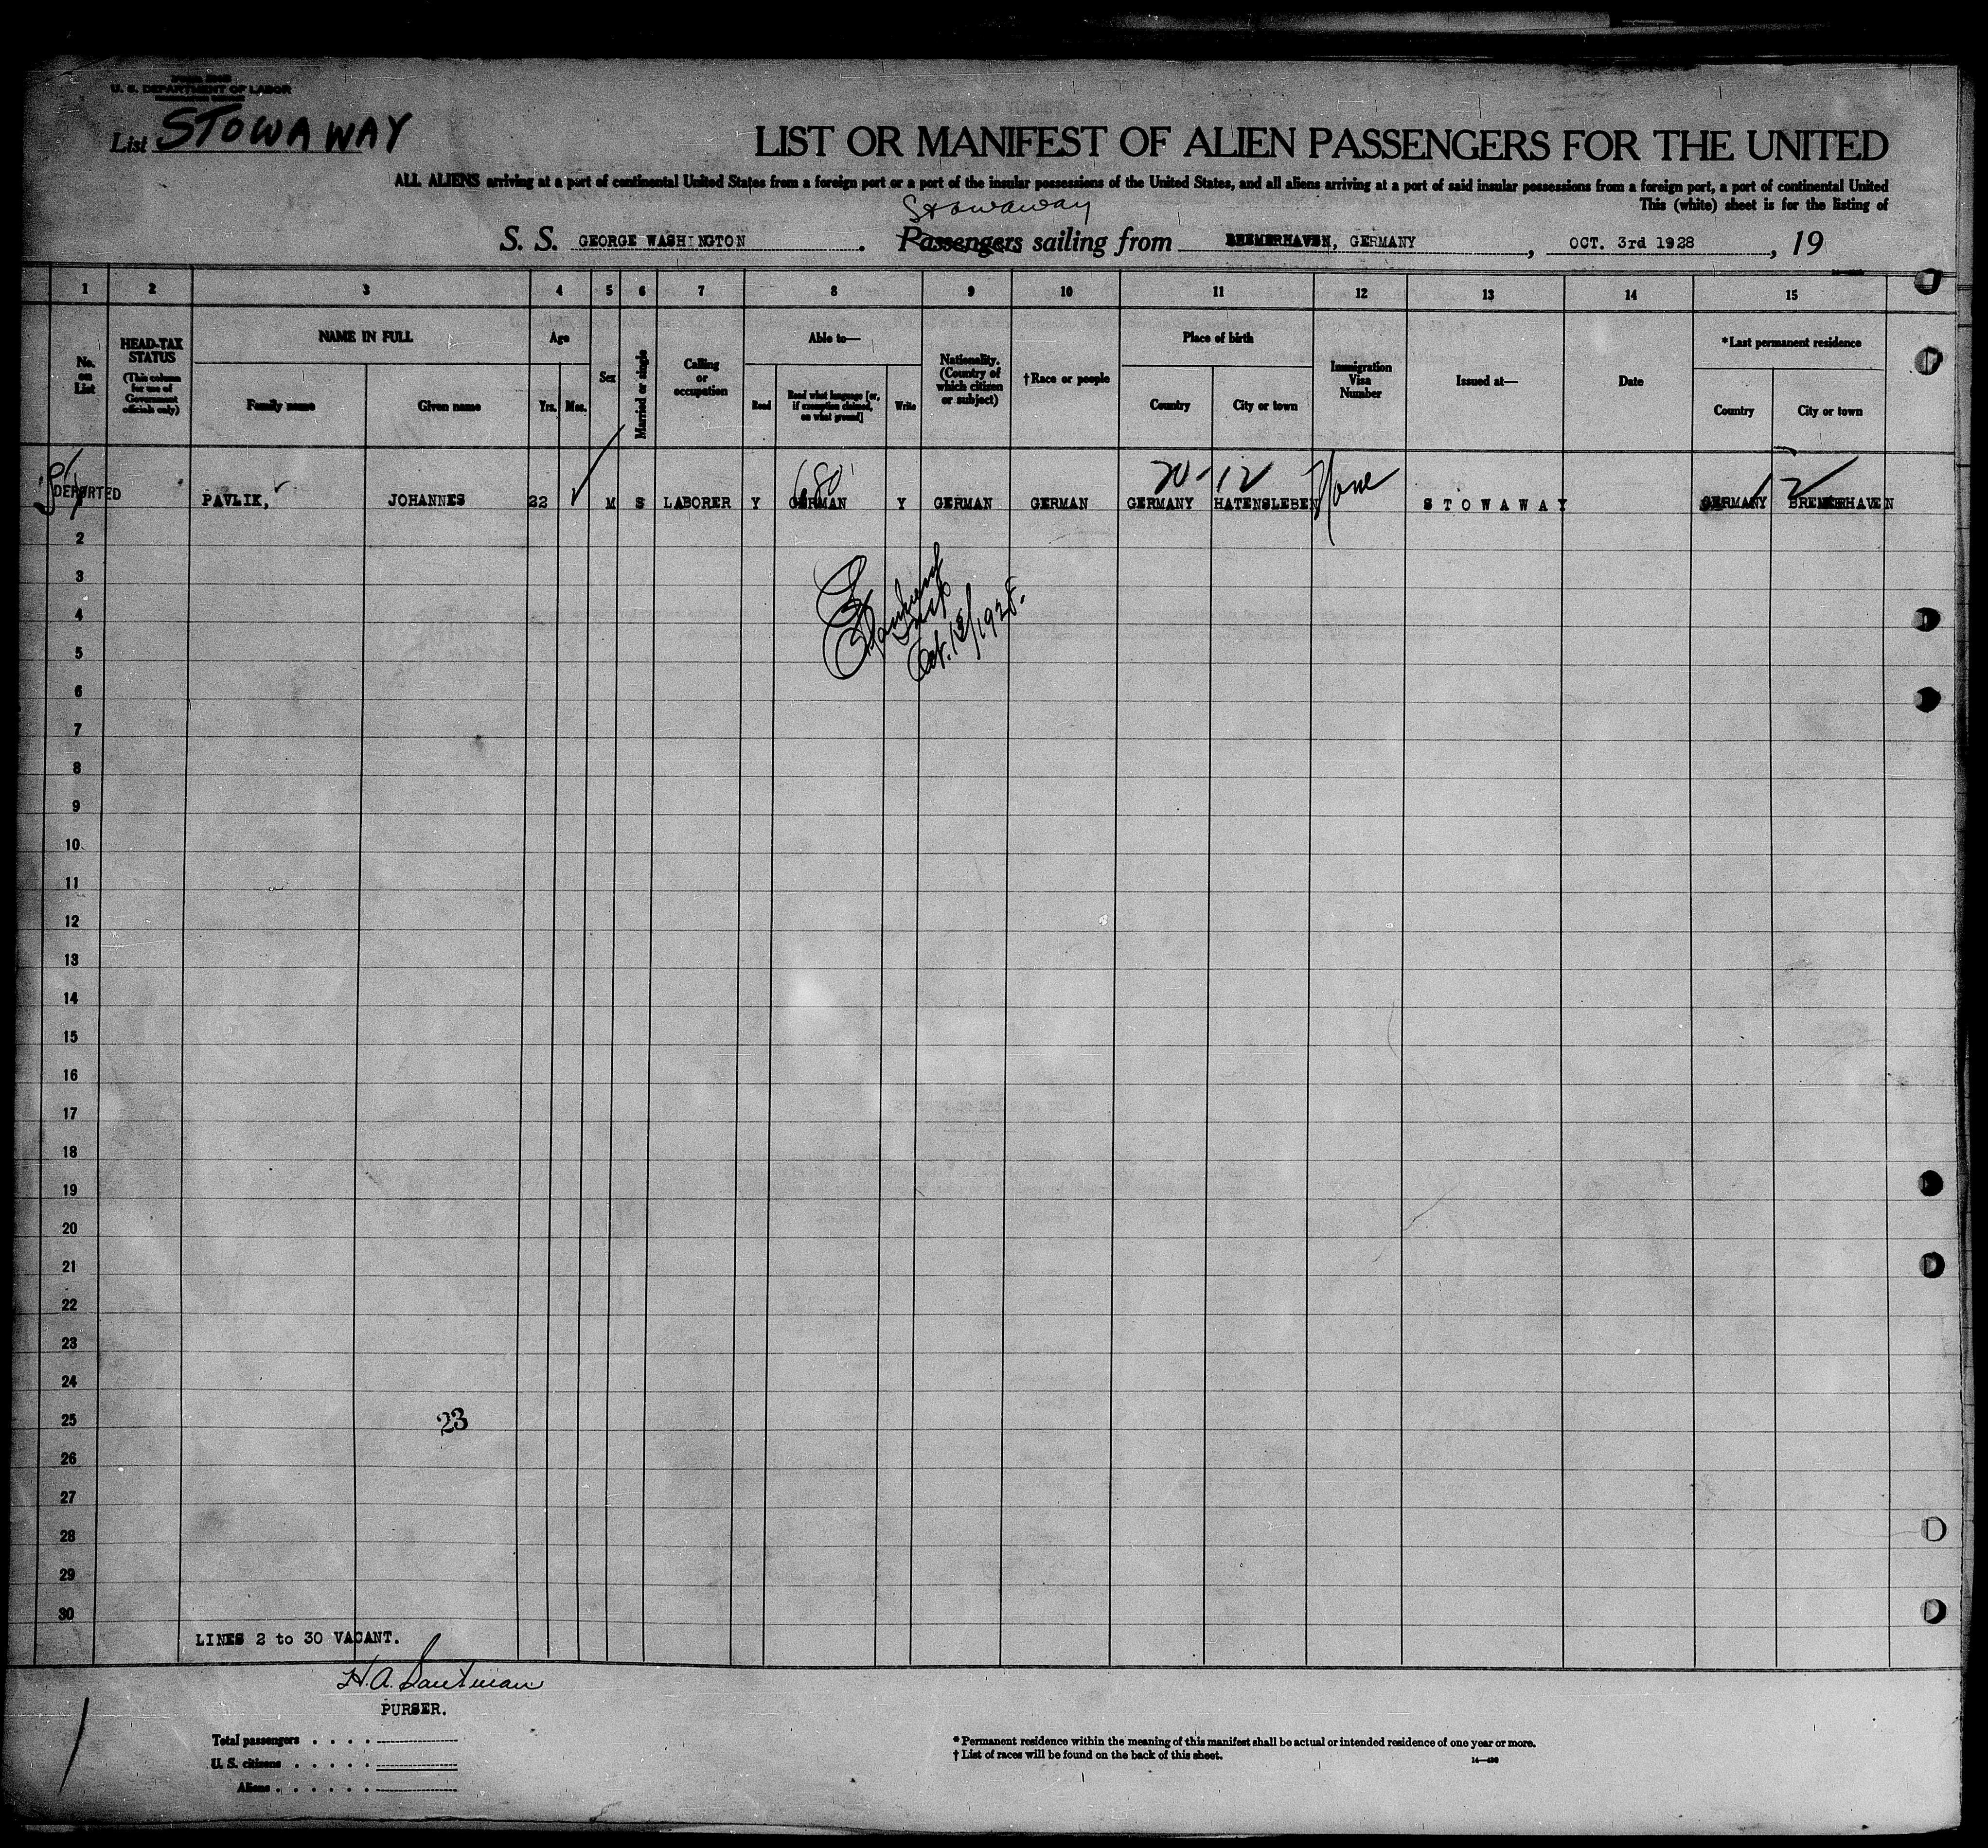 U. S. DEPARTMENT OF LABOR
List STOWAWAY
LIST OR MANIFEST OF ALIEN PASSENGERS FOR THE UNITED
ALL ALIENS arriving at a port of continental United States from a foreign port or a port of the insular possessions of the United States, and all aliens arriving at a port of said insular possessions from a foreign port, a port of continental United
This (white) sheet is for the listing of
Stowaway
S. S. GEORGE WASHINGTON . Passengers sailing from BREMERHAVEN, GERMANY , OCT. 3rd 1928 , 19
1 2 3 4 5 6 7 8 9 10 11 12 13 14 15
No. on List
HEAD-TAX STATUS
(This column for use of Government officials only)
NAME IN FULL
Family name
Given name
Age
Yrs.
Mos.
Sex
Married or single
Calling or occupation
Able to—
Read
Read what language [or, if exemption claimed, on what ground]
Write
Nationality. (Country of which citizen or subject)
†Race or people
Place of birth
Country
City or town
Immigration Visa Number
Issued at—
Date
*Last permanent residence
Country
City or town
680
20-12
None
12
DEPORTED PAVLIK, JOHANNES 22 M S LABORER Y GERMAN Y GERMAN GERMAN GERMANY HATENSLEBEN STOWAWAY GERMANY BREMERHAVEN
2
3
4
Oct. 12/1928.
5
6
7
8
9
10
11
12
13
14
15
16
17
18
19
20
21
22
23
24
25
23
26
27
28
29
30
LINES 2 to 30 VACANT.
PURSER.
Total passengers
U. S. citizens
Aliens
* Permanent residence within the meaning of this manifest shall be actual or intended residence of one year or more.
† List of races will be found on the back of this sheet.
14—430